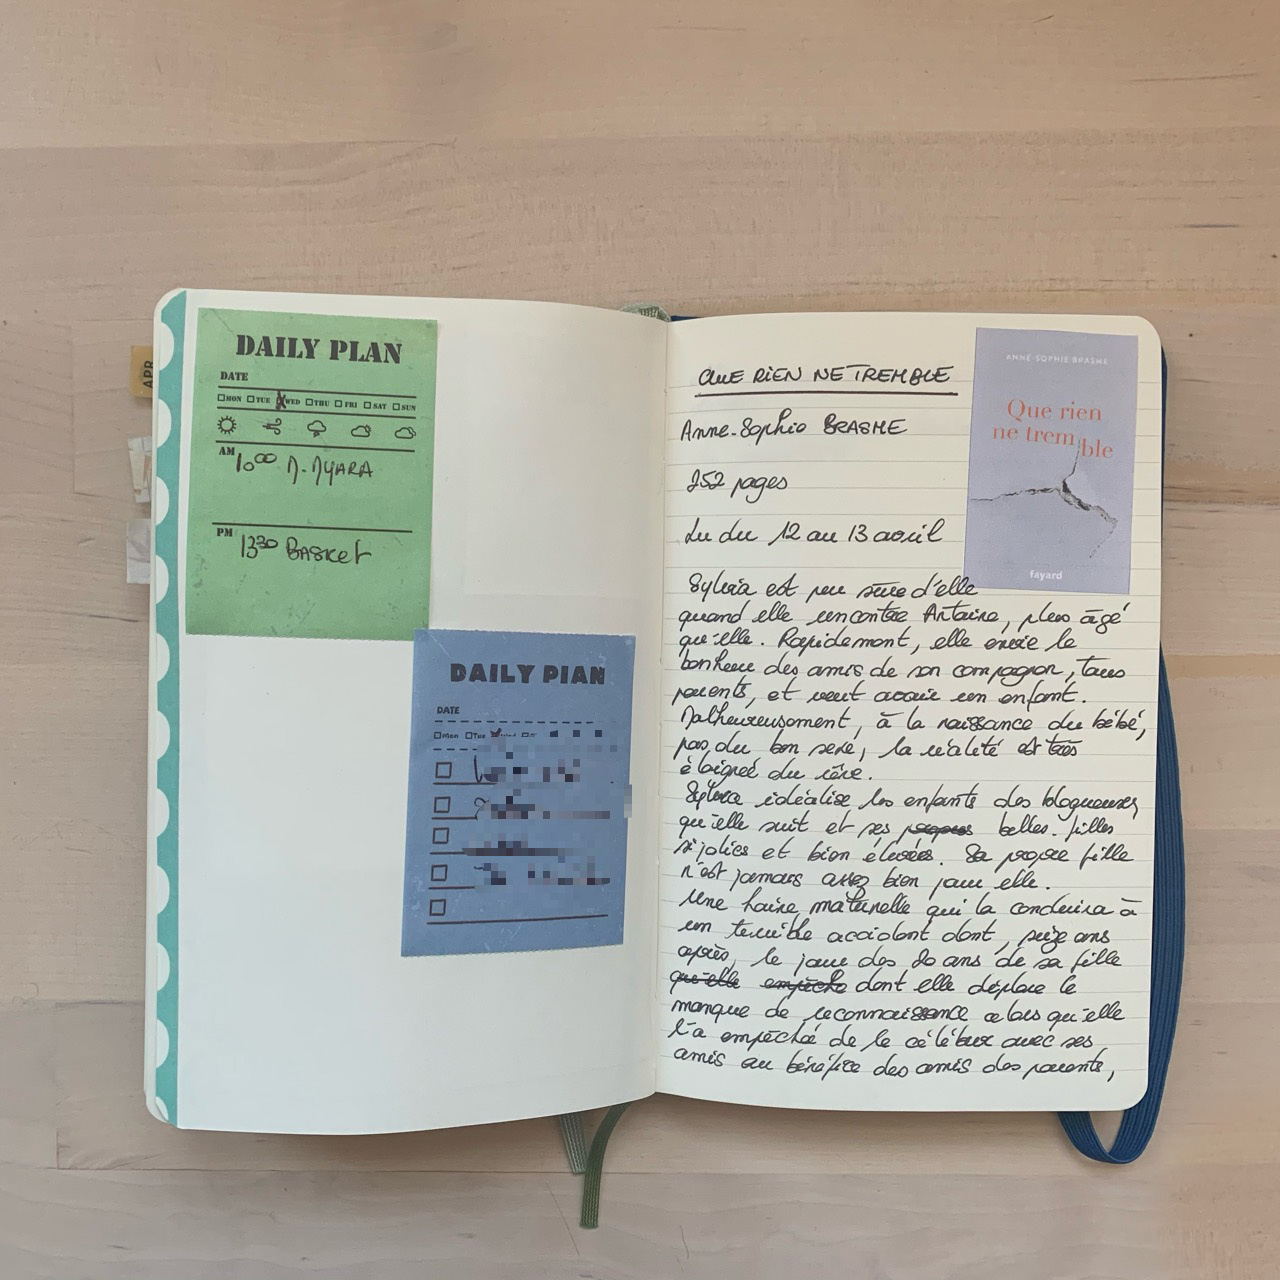 APR
DAILY PLAN
DATE
MON TUE WED THU FRI SAT SUN
AM
10⁰⁰
PM
13³⁰ BASKET
DAILY PLAN
DATE
Mon Tue Wed
QUE RIEN NE TREMBLE
Anne-Sophie BRASME
252 pages
Lu du 12 au 13 avril
ANNE-SOPHIE BRASME
Que rien
ne tremble
fayard
Sylvia est peu sûre d'elle
quand elle rencontre Antoine, plus âgé
qu'elle. Rapidement, elle envie le
bonheur des amis de son compagnon, tous
parents, et veut avoir un enfant.
Malheureusement, à la naissance du bébé,
pas du bon sexe, la réalité est très
éloignée du rêve.
Sylvia idéalise les enfants des blogueuses
qu'elle suit et ses propres belles-filles
si jolies et bien élevées. Sa propre fille
n'est jamais assez bien pour elle.
Une haine maternelle qui la conduira à
un terrible accident dont, seize ans
après, le jour des 20 ans de sa fille
qu'elle empêche dont elle déplore le
manque de reconnaissance alors qu'elle
l'a empêchée de le célébrer avec ses
amis au bénéfice des amis des parents,